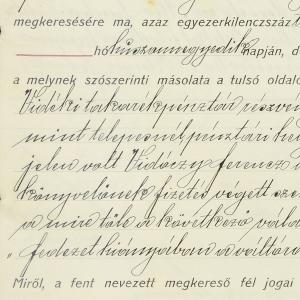 megkeresésére ma, azaz egyezerkilenczszáz
hó huszonnegyedik napján, d
a melynek szószerinti másolata a tulsó oldalo
Vidéki takarékpénztár részvén
mint telepesnél pénztári he
jelen volt Vidóczy ferencz
könyvelőnek fizetés végett
a mire tőle a következő vála
„fedezet hiányában a váltóra
Miről, a fent nevezett megkereső fél jogai